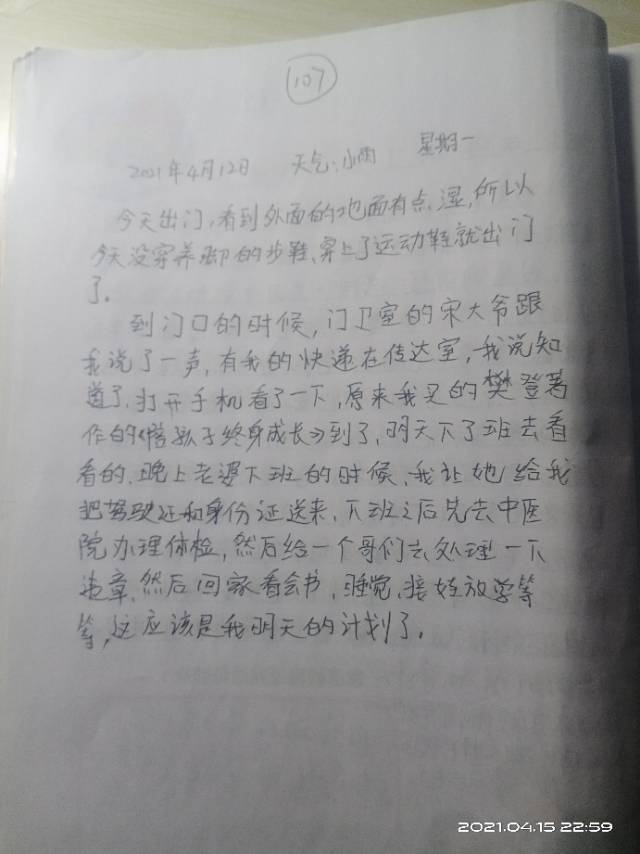 107
2021年4月12日 天气:小雨 星期一
今天出门,看到外面的地面有点湿,所以
今天没穿养脚的步鞋,穿上了运动鞋就出门
了。
到门口的时候,门卫室的宋大爷跟
我说了一声,有我的快递在传达室,我说知
道了,打开手机看了一下,原来我买的樊登著
作的《陪孩子终身成长》到了,明天下了班去看
看的,晚上老婆下班的时候,我让她给我
把驾驶证和身份证送来,下班之后先去中医
院办理体检,然后给一个哥们去处理一下
违章,然后回家看会书,睡觉,接娃放学等
等,这应该是我明天的计划了。
2021.04.15 22:59